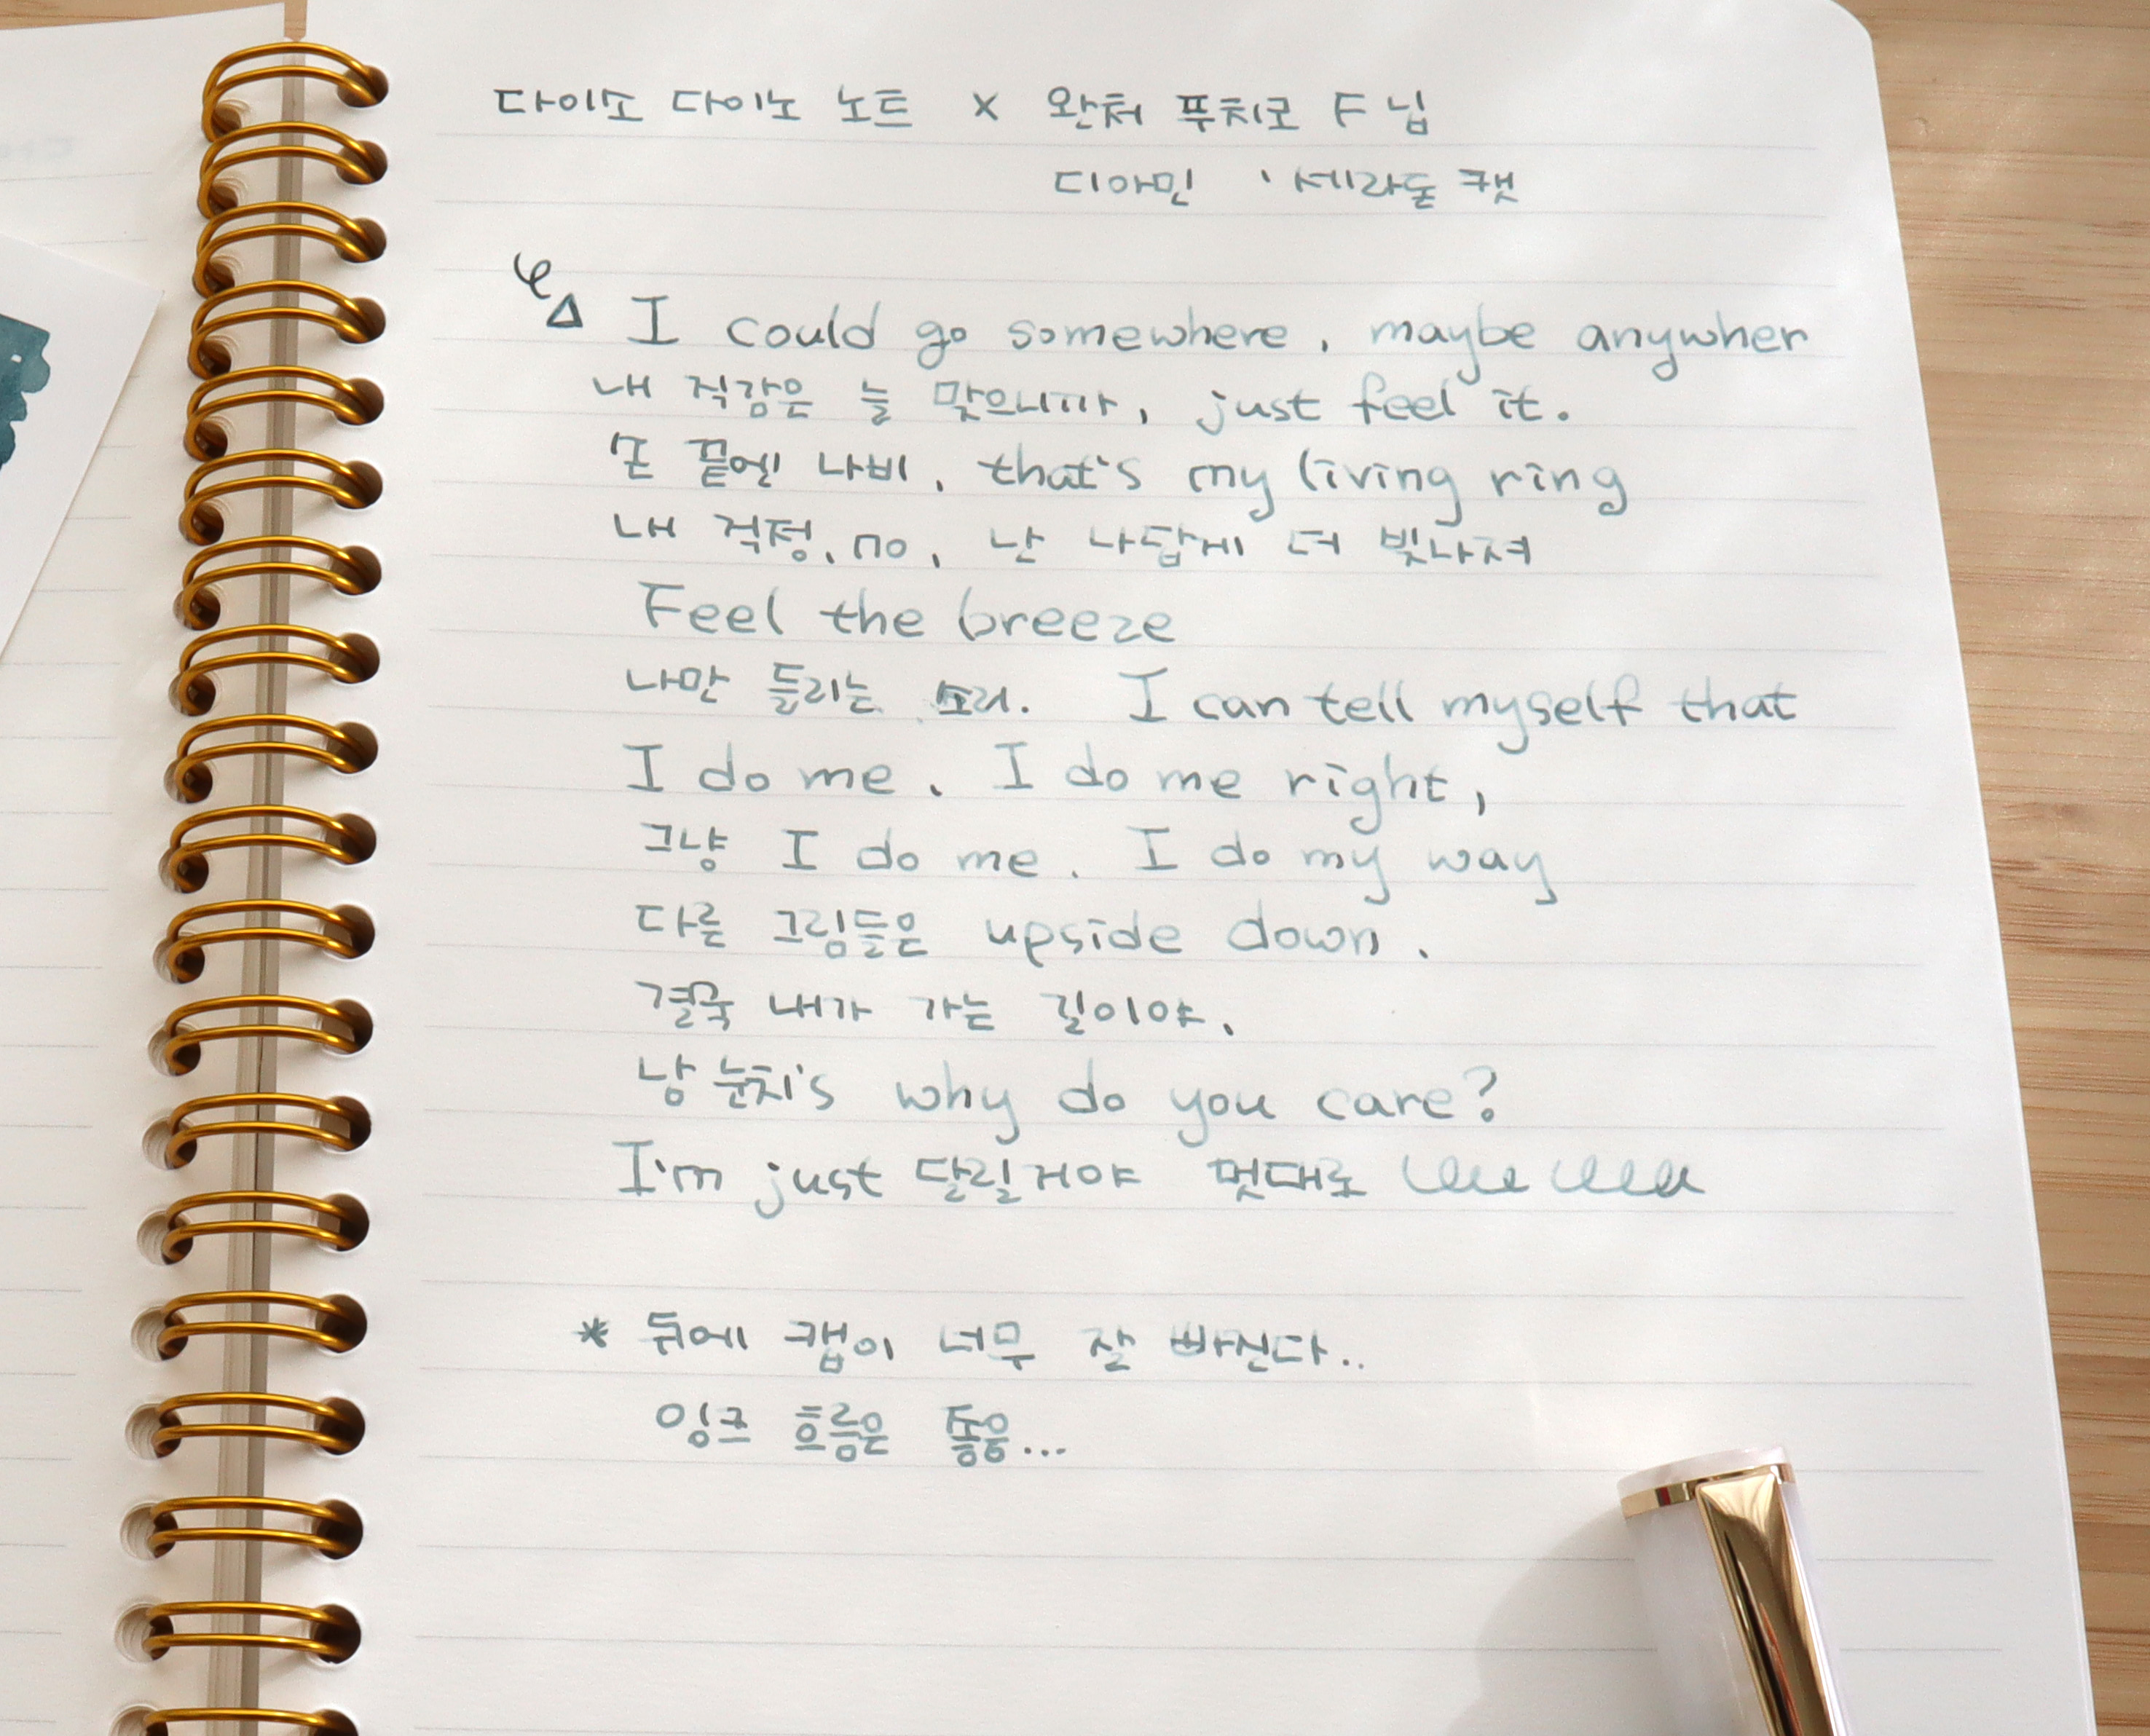 다이소 다이노 노트 x 완처 푸치코 F 닙
디아민 ' 세라돈 캣
I could go somewhere, maybe anywher
내 직감은 늘 맞으니까, just feel it.
손 끝엔 나비, that's my living ring
내 걱정, no, 난 나답게 더 빛나져
Feel the breeze
나만 들리는 소리. I can tell myself that
I do me, I do me right,
그냥 I do me, I do my way
다른 그림들은 upside down.
결국 내가 가는 길이야.
낭 눈치's why do you care?
I'm just 달릴거야 멋대로
* 뒤에 캡이 너무 잘 빠진다..
잉크 흐름은 좋음...